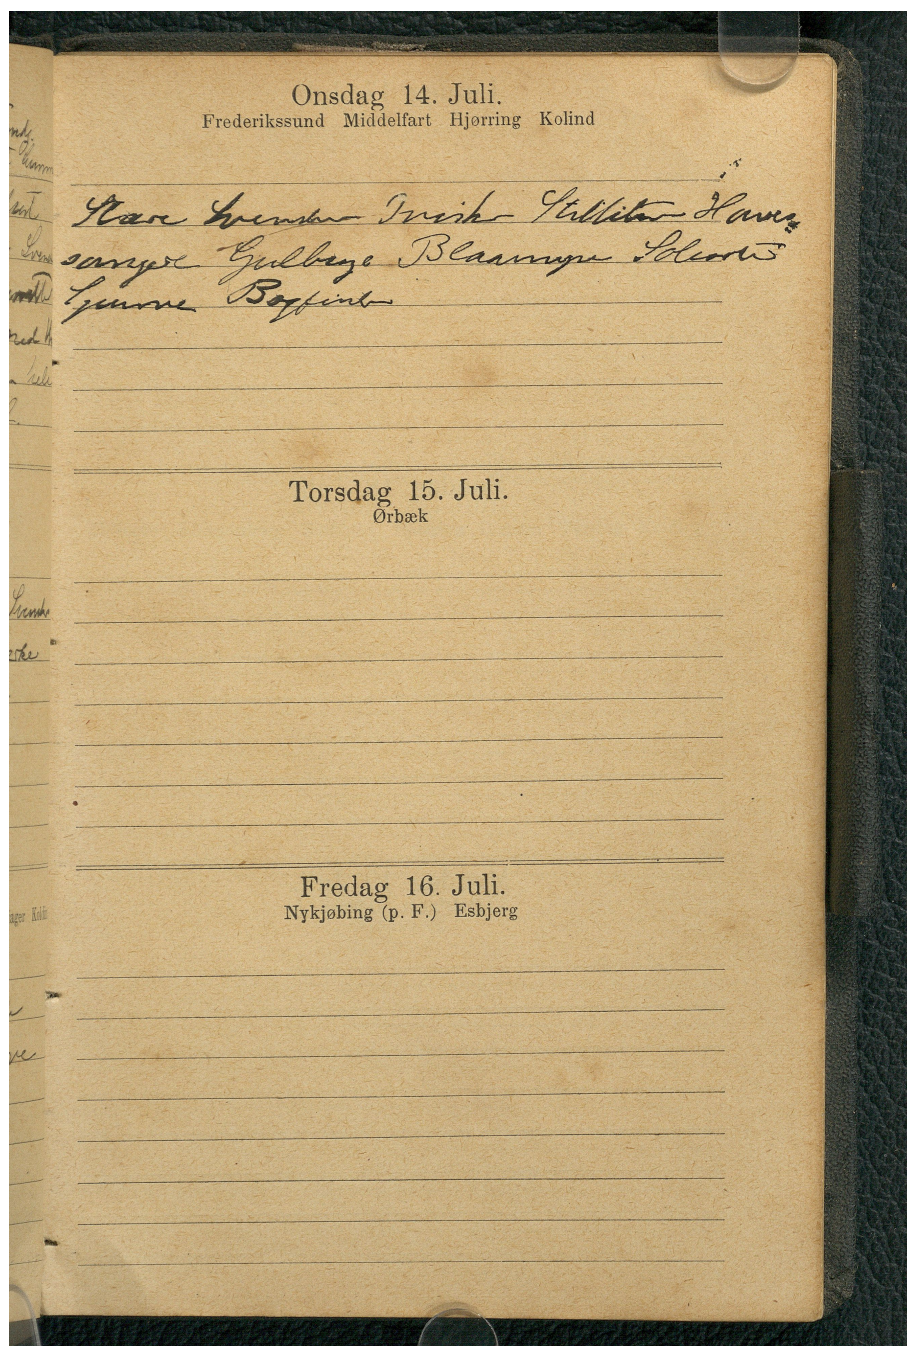 Onsdag 14. Juli.
Frederikssund Middelfart Hjørring Kolind
Stære Svenske Irisker Stillitser Have=
sanger Gulbuge Blaamejse Solsorte
Spurve Bogfinke
Torsdag 15. Juli.
Ørbæk
Fredag 16. Juli.
Nykjøbing (p. F.) Esbjerg